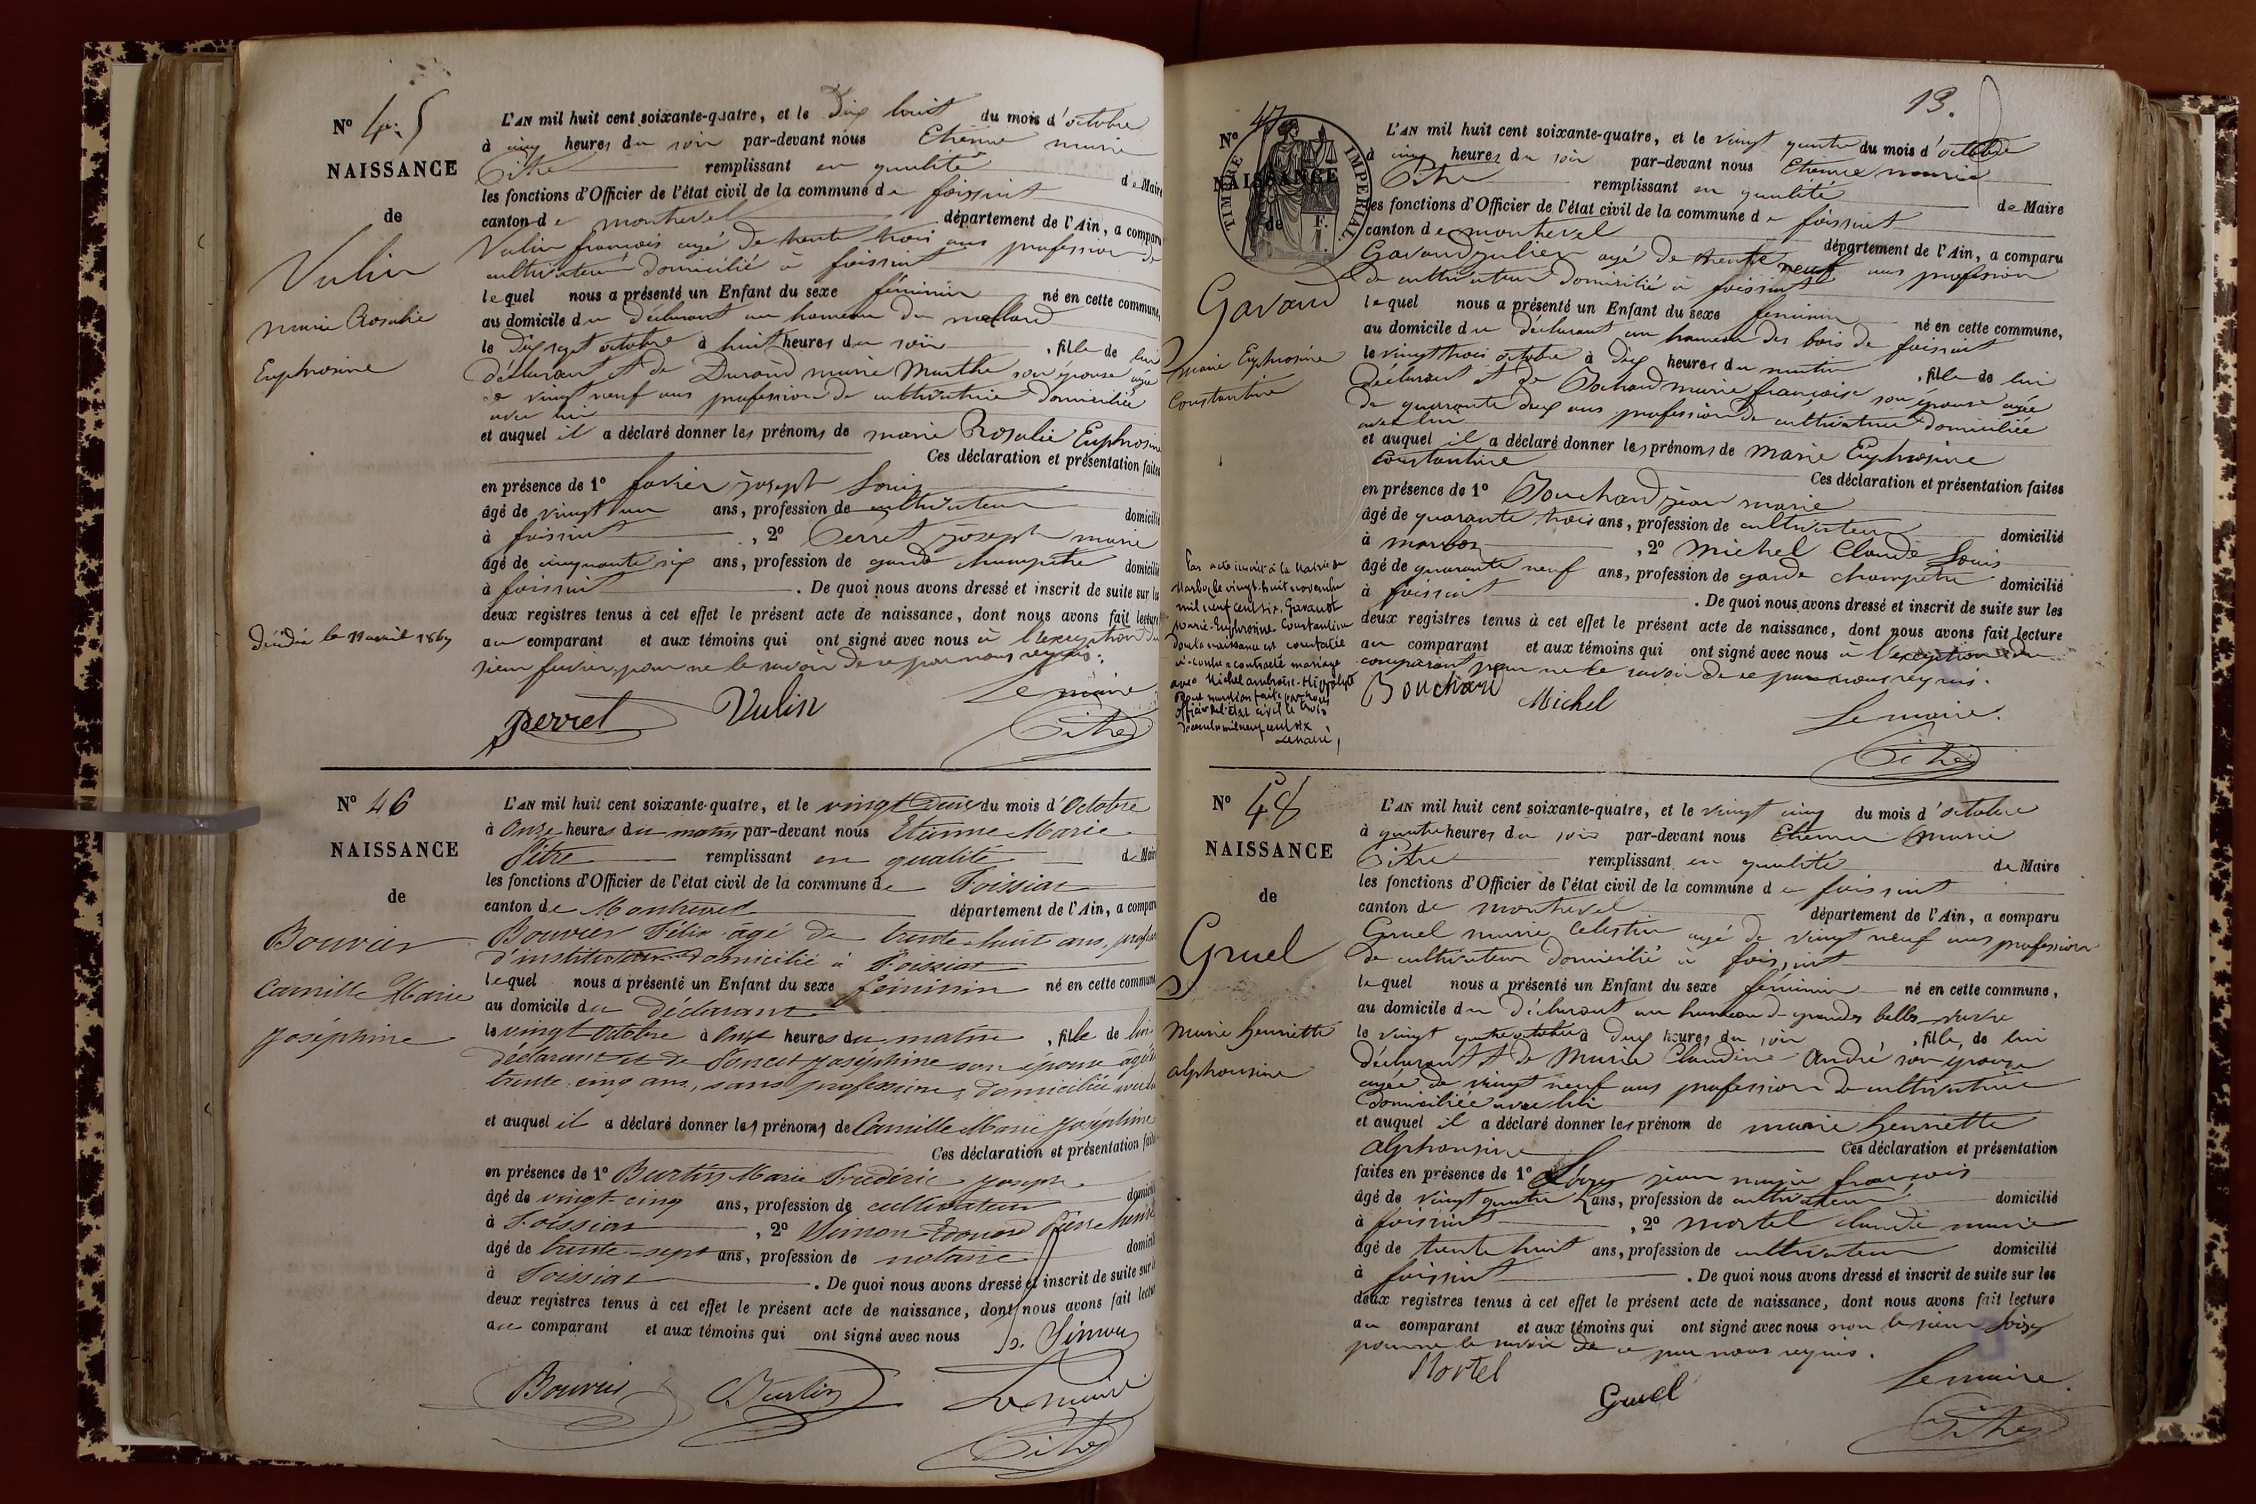 N° 45
NAISSANCE
de
Vulin
marie Rosalie
Euphrosine
Décédée le 11 avril 1867
L'AN mil huit cent soixante-quatre, et le Dix huit du mois d'octobre
à cinq heures du soir par-devant nous Etienne marie
Pitre remplissant en qualité de Maire
les fonctions d'Officier de l'état civil de la commune de foissiat
canton de montrevel département de l'Ain, a comparu
Vulin francois agé de trente trois ans profession de
cultivateur domicilié à foissiat
lequel nous a présenté un Enfant du sexe féminin né en cette commune,
au domicile du déclarant au hameau du
le Dix sept octobre à huit heures du soir , fille de lui
déclarant et de Durand marie Marthe son épouse agée
de vingt neuf ans profession de cultivatrice domiciliée
avec lui
et auquel il a déclaré donner les prénoms de marie Rosalie Euphrosine
Ces déclaration et présentation faites
en présence de 1° favier joseph Louis
âgé de vingt un ans, profession de cultivateur domicilié
à foissiat , 2° Perret joseph marie
âgé de cinquante six ans, profession de garde champetre domicilié
à foissiat . De quoi nous avons dressé et inscrit de suite sur les
deux registres tenus à cet effet le présent acte de naissance, dont nous avons fait lecture
au comparant et aux témoins qui ont signé avec nous à l'exception du
sieur favier pour ne le savoir de ce par nous requis.
Le maire
perret Vulin Pitre
N° 46
NAISSANCE
de
Bouvier
Camille Marie
Joséphine
L'AN mil huit cent soixante-quatre, et le vingt deux du mois d'Octobre
à Onze heures du matin par-devant nous Etienne Marie
Pitre remplissant en qualité de Maire
les fonctions d'Officier de l'état civil de la commune de Foissiat
canton de Montrevel département de l'Ain, a comparu
Bouvier Félix âgé de trente-huit ans, profession
d'instituteur domicilié à Foissiat
lequel nous a présenté un Enfant du sexe féminin né en cette commune
au domicile du déclarant
le vingt Octobre à Onze heures du matin , fille de lui
déclarant et de Poncet Joséphine son épouse âgée
trente cinq ans, sans profession, domiciliée avec lui
et auquel il a déclaré donner les prénoms de Camille Marie Joséphine
Ces déclaration et présentation faites
en présence de 1° Burtin Marie Frédéric Joseph
âgé de vingt-cinq ans, profession de cultivateur domicilié
à Foissiat , 2° Simon Edouard Pierre
âgé de trente-sept ans, profession de notaire domicilié
à Foissiat . De quoi nous avons dressé et inscrit de suite sur les
deux registres tenus à cet effet le présent acte de naissance, dont nous avons fait lecture
au comparant et aux témoins qui ont signé avec nous
Simon
Bouvier Burtin Le maire
Pitre
13.
N° 47
NAISSANCE
de
TIMBRE IMPERIAL.
Gavand
marie Euphrosine
Constantine
Par acte inscrit à la mairie de
Marboz le vingt-huit novembre
mil neuf cent six, Gavand
Marie-Euphrosine Constantine
dont la naissance est constatée
ci-contre a contracté mariage
avec Michel Ambroise-Hippolyte
Pour mention faite par nous
officier de l'état civil le trois
décembre mil neuf cent six
Le Maire,
L'AN mil huit cent soixante-quatre, et le vingt quatre du mois d'octobre
à cinq heures du soir par-devant nous Etienne marie
Pitre remplissant en qualité de Maire
les fonctions d'Officier de l'état civil de la commune de foissiat
canton de montrevel département de l'Ain, a comparu
Gavand julien agé de trente neuf ans profession
de cultivateur domicilié à foissiat
lequel nous a présenté un Enfant du sexe féminin né en cette commune,
au domicile du déclarant au hameau des bois de foissiat
le vingt trois octobre à deux heures du matin , fille de lui
déclarant et de Bochard marie françoise son épouse agée
de quarante deux ans profession de cultivatrice domiciliée
avec lui
et auquel il a déclaré donner les prénoms de marie Euphrosine
Constantine
Ces déclaration et présentation faites
en présence de 1° Bouchard jean marie
âgé de quarante trois ans, profession de cultivateur domicilié
à marboz , 2° michel Claude Louis
âgé de quarante neuf ans, profession de garde champetre domicilié
à foissiat . De quoi nous avons dressé et inscrit de suite sur les
deux registres tenus à cet effet le présent acte de naissance, dont nous avons fait lecture
au comparant et aux témoins qui ont signé avec nous à l'exception du
comparant pour ne le savoir de ce par nous requis.
Bouchard Michel
Le maire.
Pitre
N° 48
NAISSANCE
de
Gruel
Marie henriette
alphonsine
L'AN mil huit cent soixante-quatre, et le vingt cinq du mois d'octobre
à quatre heures du soir par-devant nous Etienne marie
Pitre remplissant en qualité de Maire
les fonctions d'Officier de l'état civil de la commune de foissiat
canton de montrevel département de l'Ain, a comparu
Gruel marie Celestin agé de vingt neuf ans profession
de cultivateur domicilié à foissiat
lequel nous a présenté un Enfant du sexe féminin né en cette commune,
au domicile du déclarant au hameau de grandes belles
le vingt quatre octobre à deux heures du soir , fille de lui
déclarant et de Marie Claudine André son épouse
agée de vingt neuf ans profession de cultivatrice
domiciliée avec lui
et auquel il a déclaré donner les prénom de marie henriette
alphonsine
Ces déclaration et présentation
faites en présence de 1° jean marie françois
âgé de vingt quatre ans, profession de cultivateur domicilié
à foissiat , 2° mortel claude marie
âgé de trente huit ans, profession de cultivateur domicilié
à foissiat . De quoi nous avons dressé et inscrit de suite sur les
deux registres tenus à cet effet le présent acte de naissance, dont nous avons fait lecture
au comparant et aux témoins qui ont signé avec nous non le sieur
pour ne le savoir de ce par nous requis.
Mortel
Gruel
Le maire.
Pitre